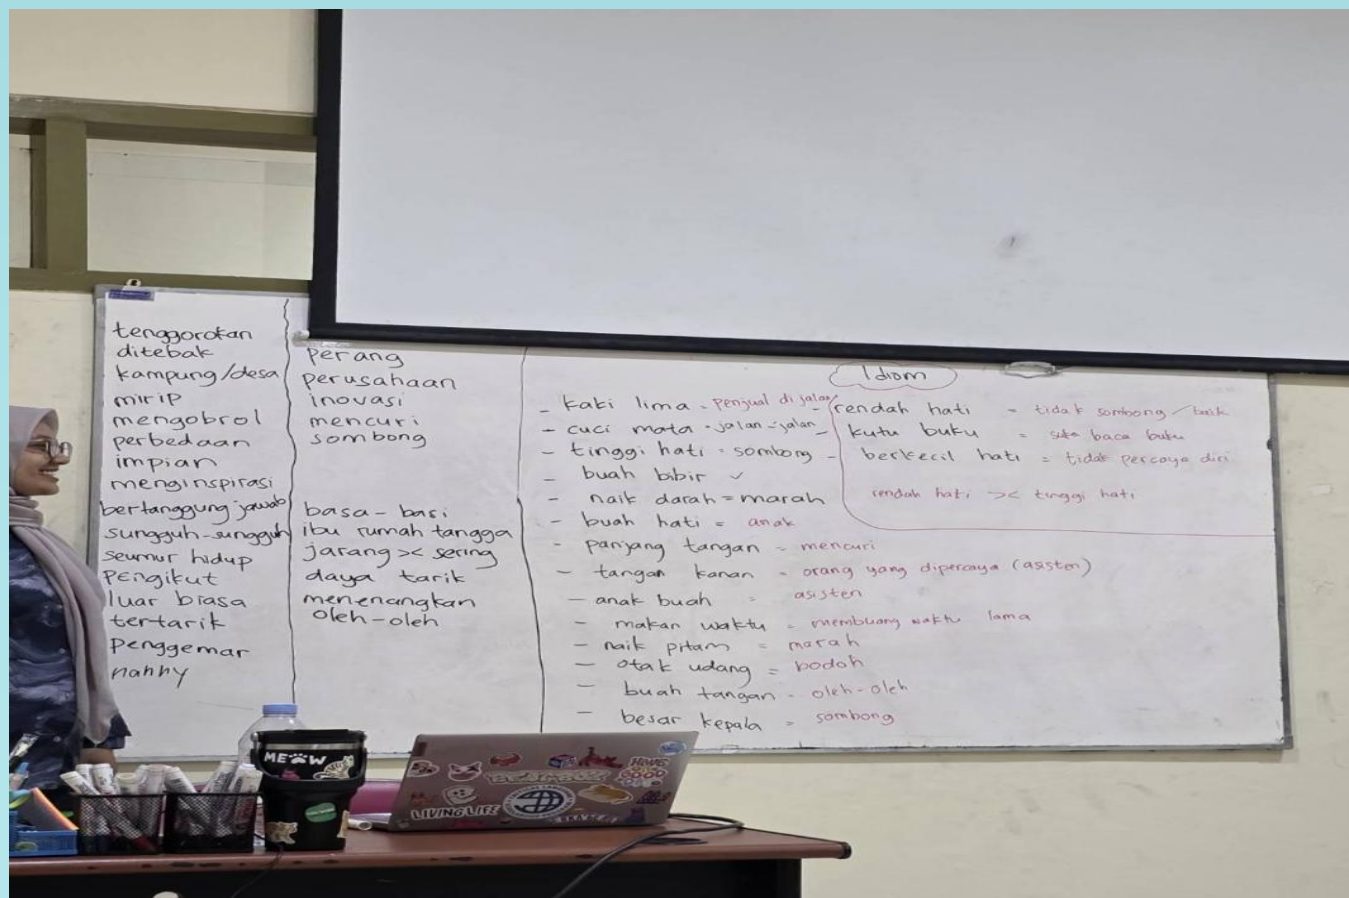 tenggorokan
ditebak
kampung/desa
mirip
mengobrol
perbedaan
impian
menginspirasi
bertanggung jawab
sungguh-sungguh
seumur hidup
pengikut
luar biasa
tertarik
penggemar
nanny
perang
perusahaan
inovasi
mencuri
sombong
basa-basi
ibu rumah tangga
jarang >< sering
daya tarik
menenangkan
oleh-oleh
Idiom
- kaki lima = penjual di jalan
- cuci mata = jalan-jalan
- tinggi hati = sombong
- buah bibir ✓
- naik darah = marah
- buah hati = anak
- panjang tangan = mencuri
- tangan kanan = orang yang dipercaya (asisten)
- anak buah = asisten
- makan waktu = membuang waktu lama
- naik pitam = marah
- otak udang = bodoh
- buah tangan = oleh-oleh
- besar kepala = sombong
- rendah hati = tidak sombong/baik
- kutu buku = suka baca buku
- berkecil hati = tidak percaya diri
rendah hati >< tinggi hati
MEOW
HOME
LIVING LIFE